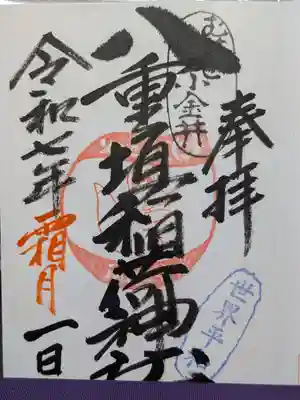 奉拝
むさし
小金井
八重垣稲荷神社
令和七年
霜月
一日
世界平和